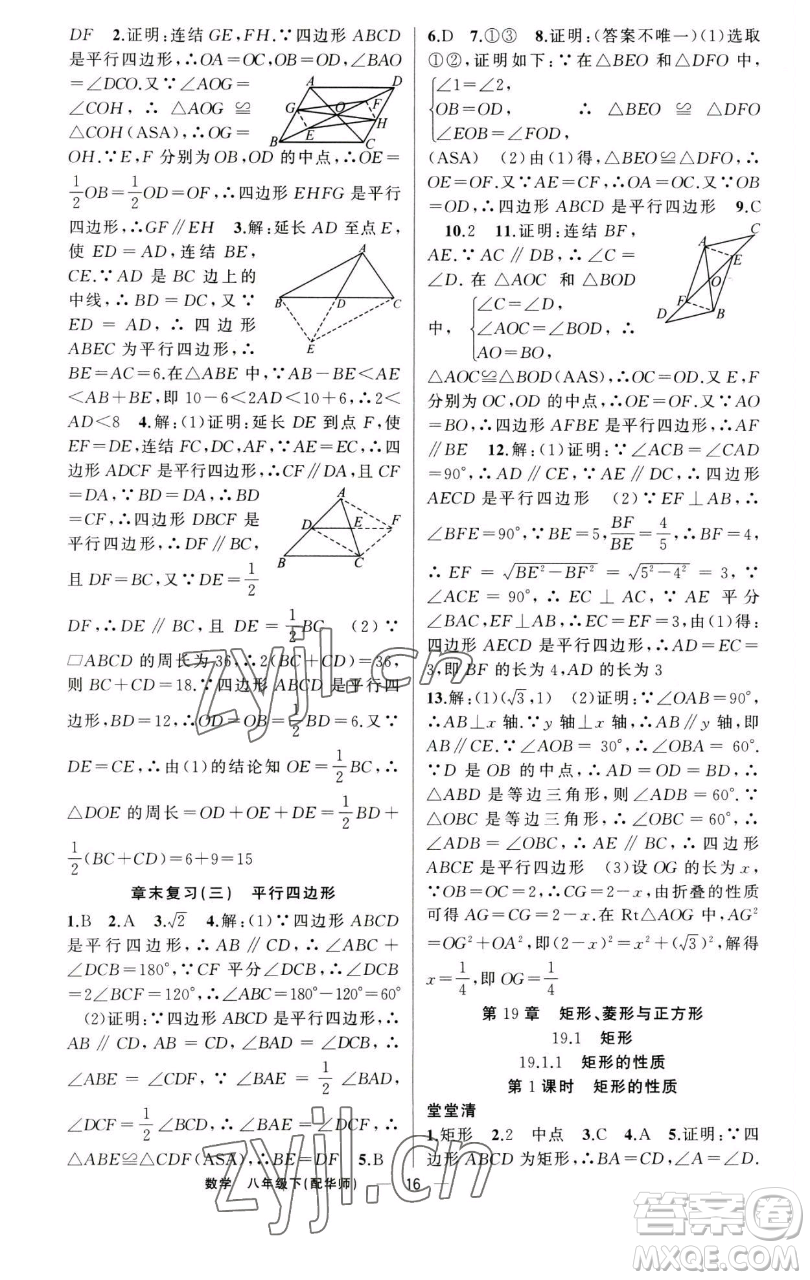 DF　2.证明:连结 GE,FH.∵四边形 ABCD
是平行四边形,∴OA=OC,OB=OD,∠BAO
=∠DCO.又∵∠AOG=
∠COH,∴△AOG≌
△COH(ASA),∴OG=
OH.∵E,F 分别为 OB,OD 的中点,∴OE=
1/2 OB=1/2 OD=OF,∴四边形 EHFG 是平行
四边形,∴GF∥EH　3.解:延长 AD 至点 E,
使 ED=AD,连结 BE,
CE.∵AD 是 BC 边上的
中线,∴BD=DC,又∵
ED=AD,∴四边形
ABEC 为平行四边形,∴
BE=AC=6.在△ABE 中,∵AB-BE<AE
<AB+BE,即 10-6<2AD<10+6,∴2<
AD<8　4.解:(1)证明:延长 DE 到点 F,使
EF=DE,连结 FC,DC,AF,∵AE=EC,∴四
边形 ADCF 是平行四边形,∴CF∥DA,且 CF
=DA,∵BD=DA,∴BD
=CF,∴四边形 DBCF 是
平行四边形,∴DF∥BC,
且 DF=BC,又∵DE=1/2
DF,∴DE∥BC,且 DE=1/2 BC　(2)∵
□ABCD 的周长为 36,∴2(BC+CD)=36,
则 BC+CD=18.∵四边形 ABCD 是平行四
边形,BD=12,∴OD=OB=1/2 BD=6.又∵
DE=CE,∴由(1)的结论知 OE=1/2 BC,∴
△DOE 的周长=OD+OE+DE=1/2 BD+
1/2 (BC+CD)=6+9=15
章末复习(三)　平行四边形
1.B　2.A　3.√2　4.解:(1)∵四边形 ABCD
是平行四边形,∴AB∥CD,∴∠ABC+
∠DCB=180°,∵CF 平分∠DCB,∴∠DCB
=2∠BCF=120°,∴∠ABC=180°-120°=60°
(2)证明:∵四边形 ABCD 是平行四边形,∴
AB∥CD,AB=CD,∠BAD=∠DCB,∴
∠ABE=∠CDF,∵∠BAE=1/2 ∠BAD,
∠DCF=1/2 ∠BCD,∴∠BAE=∠DCF,∴
△ABE≌△CDF(ASA),∴BE=DF　5.B
6.D　7.①③　8.证明:(答案不唯一)(1)选取
①②,证明如下:∵在△BEO 和△DFO 中,
∠1=∠2,
OB=OD,　∴△BEO≌△DFO
∠EOB=∠FOD,
(ASA)　(2)由(1)得,△BEO≌△DFO,∴
OE=OF.∵AE=CF,∴OA=OC.又∵OB
=OD,∴四边形 ABCD 是平行四边形　9.C
10.2　11.证明:连结 BF,
AE.∵AC∥DB,∴∠C=
∠D.在△AOC 和△BOD
∠C=∠D,
中,∠AOC=∠BOD,∴
AO=BO,
△AOC≌△BOD(AAS),∴OC=OD.又 E,F
分别为 OC,OD 的中点,∴OE=OF.又∵AO
=BO,∴四边形 AFBE 是平行四边形,∴AF
∥BE　12.解:(1)证明:∵∠ACB=∠CAD
=90°,∴AD∥CE,∵AE∥DC,∴四边形
AECD 是平行四边形　(2)∵EF⊥AB,∴
∠BFE=90°,∵BE=5,BF/BE=4/5,∴BF=4,
∴EF=√(BE²-BF²)=√(5²-4²)=3,∵
∠ACE=90°,∴EC⊥AC,∵AE 平分
∠BAC,EF⊥AB,∴EF=EC=3,由(1)得:
四边形 AECD 是平行四边形,∴AD=EC=
3,即 BF 的长为 4,AD 的长为 3
13.解:(1)(√3,1)　(2)证明:∵∠OAB=90°,
∴AB⊥x 轴.∵y 轴⊥x 轴,∴AB∥y 轴,即
AB∥CE.∵∠AOB=30°,∴∠OBA=60°.
∵D 是 OB 的中点,∴AD=OD=BD,∴
△ABD 是等边三角形,则∠ADB=60°.又∵
△OBC 是等边三角形,∴∠OBC=60°,∴
∠ADB=∠OBC,∴AE∥BC,∴四边形
ABCE 是平行四边形　(3)设 OG 的长为 x,
∵OC=OB=2,∴CG=2-x,由折叠的性质
可得 AG=CG=2-x,在 Rt△AOG 中,AG²
=OG²+OA²,即(2-x)²=x²+(√3)²,解得
x=1/4,即 OG=1/4
第 19 章　矩形、菱形与正方形
19.1　矩形
19.1.1　矩形的性质
第 1 课时　矩形的性质
堂堂清
1.矩形　2.2　中点　3.C　4.A　5.证明:∵四
边形 ABCD 为矩形,∴AB=CD,AD=BC,
数学　八年级下(配华师)　16
zyjl.cn
zyjl.cn
答案卷
MXQE.COM